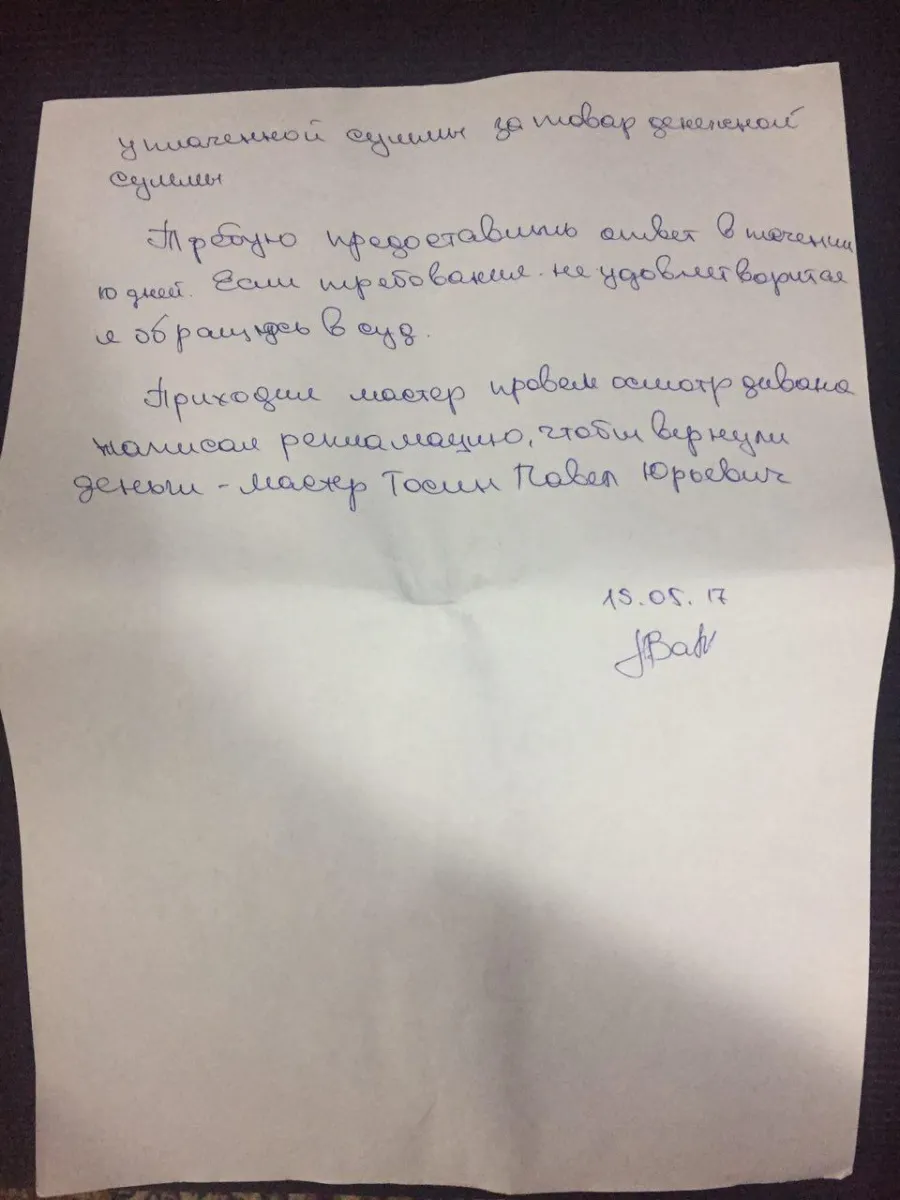 уплаченной суммы за товар денежной
суммы
Требую предоставить ответ в течении
10 дней. Если требования не удовлетворится
я обращусь в суд.
Приходил мастер провел осмотр дивана
написал рекламацию, чтобы вернули
деньги - мастер Тосин Павел Юрьевич
15.05.17